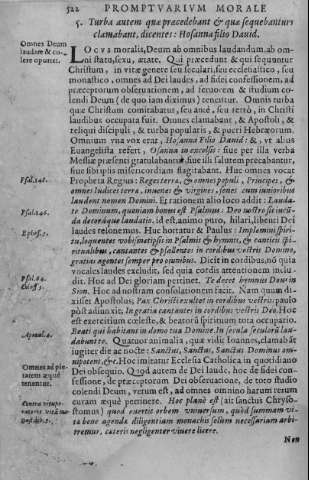 522 PROMPTVARIVM MORALE
5. Turba autem quæ præcedebant & quæ sequebantur
clamabant, dicentes: Hosanna filio Dauid.
Omnes Deum
laudare & co-
lere oportet.
Locus moralis, Deum ab omnibus laudandum, ab om-
ni statu, sexu, ætate. Qui præcedunt & qui sequuntur
Christum, in vitæ genere seu seculari, seu ecclesiastico, seu
monastico, omnes ad Dei laudes, ad fidei confessionem, ad
præceptorum obseruationem, ad iecuorem & studium co-
lendi Deum (de quo iam diximus) tenentur. Omnis turba
quæ Christum comitabatur, seu ante, seu retrò, in Christi
laudibus occupata fuit. Omnes clamabant, & Apostoli, &
reliqui discipuli, & turba popularis, & pueri Hebræorum.
Omnium vna vox erat, Hosanna Filio Dauid: &, vt alius
Euangelista refert, Osanna in excelsis: siue per illa verba
Messiæ præsenti gratulabantur, siue illi salutem precabantur,
siue sibi ipsis misericordiam flagitabant. Huc omnes vocat
Psal. 148.
Propheta Regius: Reges terræ, & omnes populi, Principes, &
omnes Iudices terræ, iuuenes & virgines, senes cum iunioribus
laudent nomen Domini. Et rationem alio loco addit: Lauda-
Psal. 146.
te Dominum, quoniam bonus est Psalmus: Deo nostro sit iucun-
da decoraque laudatio. id est, animo puro, hilari, liberi Dei
laudes resonemus. Huc hortatur & Paulus: Implemini spiri-
Ephes. 5.
tu, loquentes vobismetipsis in Psalmis & hymnis, & canticis spi-
ritualibus, cantantes & psallentes in cordibus vestris Domino,
gratias agentes semper pro omnibus. Dicit in cordibus, nō quia
vocales laudes excludit, sed quia cordis attentionem inclu-
Psal. 64.
dit. Hoc ad Dei gloriam pertinet. Te decet hymnus Deus in
Sion. Hoc ad nostram consolationem facit. Nam quum di-
Coloss. 3.
xisset Apostolus; Pax Christi exultet in cordibus vestris: paulò
pòst adiunxit. In gratia cantantes in cordibus vestris Deo. Hoc
est exercitium cœleste, & beatorū spirituum tota occupatio.
Beati qui habitant in domo tua Domine. In secula seculorū lau-
Apocal. 4.
dabunt te. Quatuor animalia, quæ vidit Ioannes, clamabāt
iugiter die ac nocte: Sanctus, Sanctus, Sanctus Dominus omni-
potens, &c. Hoc imitatur Ecclesia Catholica in quotidiano
Omnes ad pie-
tatem æquè
tenentur.
Dei obsequio. Quod autem de Dei laude, hoc de fidei con-
fessione, de præceptorum Dei obseruatione, de toto studio
colendi Deum, verum est, ad omnes omnino harum rerum
curam æquè pertinere. Hoc planè est (ait sanctus Chryso-
stomus) quod euertit orbem vniuersum, quòd summam vi-
tæ bene agenda diligentiam monachis solùm necessariam arbi-
tremur, cæteris negligenter viuere licere.
Nen